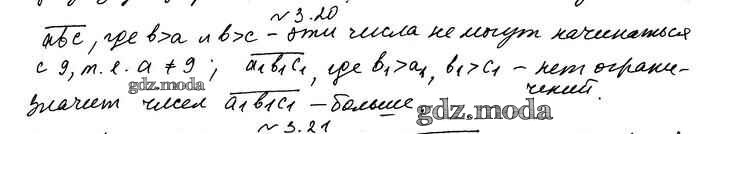 ~ 3.20
abc, где b>a и b>c – эти числа не могут начинаться
с 9, т. е. a ≠ 9; a₁b₁c₁, где b₁>a₁, b₁>c₁ – нет ограни-
чений.
gdz.moda
Значит чисел a₁b₁c₁ – больше.
gdz.moda
~ 3.21